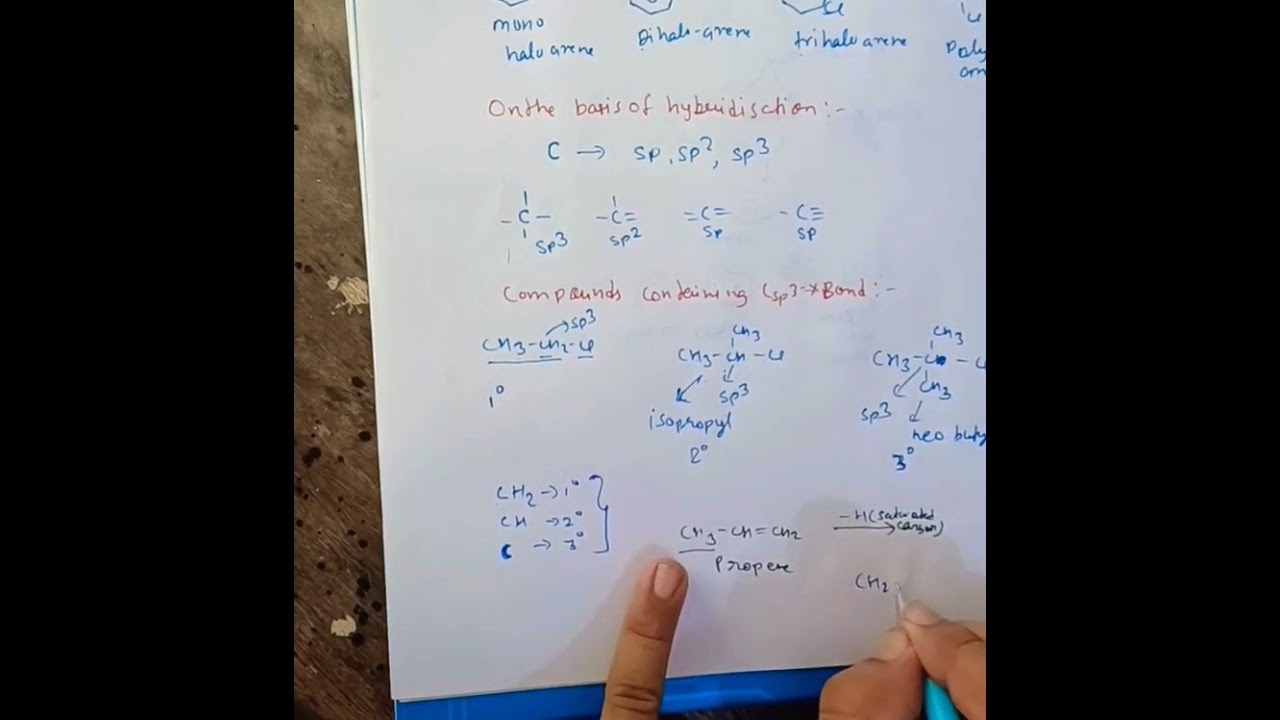 mono
halo arene
Dihalo-arene
trihalo arene
On the basis of hybridisction :-
C → sp, sp2, sp3
-C- -C= =C= -C≡
sp3 sp2 sp sp
Compounds containing Csp3-X Bond :-
sp3
CH3-CH2-Cl
1°
CH3
CH3-CH-Cl
sp3
isopropyl
2°
CH3
CH3-C-
CH3
sp3
neo buty
3°
CH2 → 1°
CH → 2°
C → 3°
CH3-CH=CH2
Propene
-H (saturated
carbon)
CH2